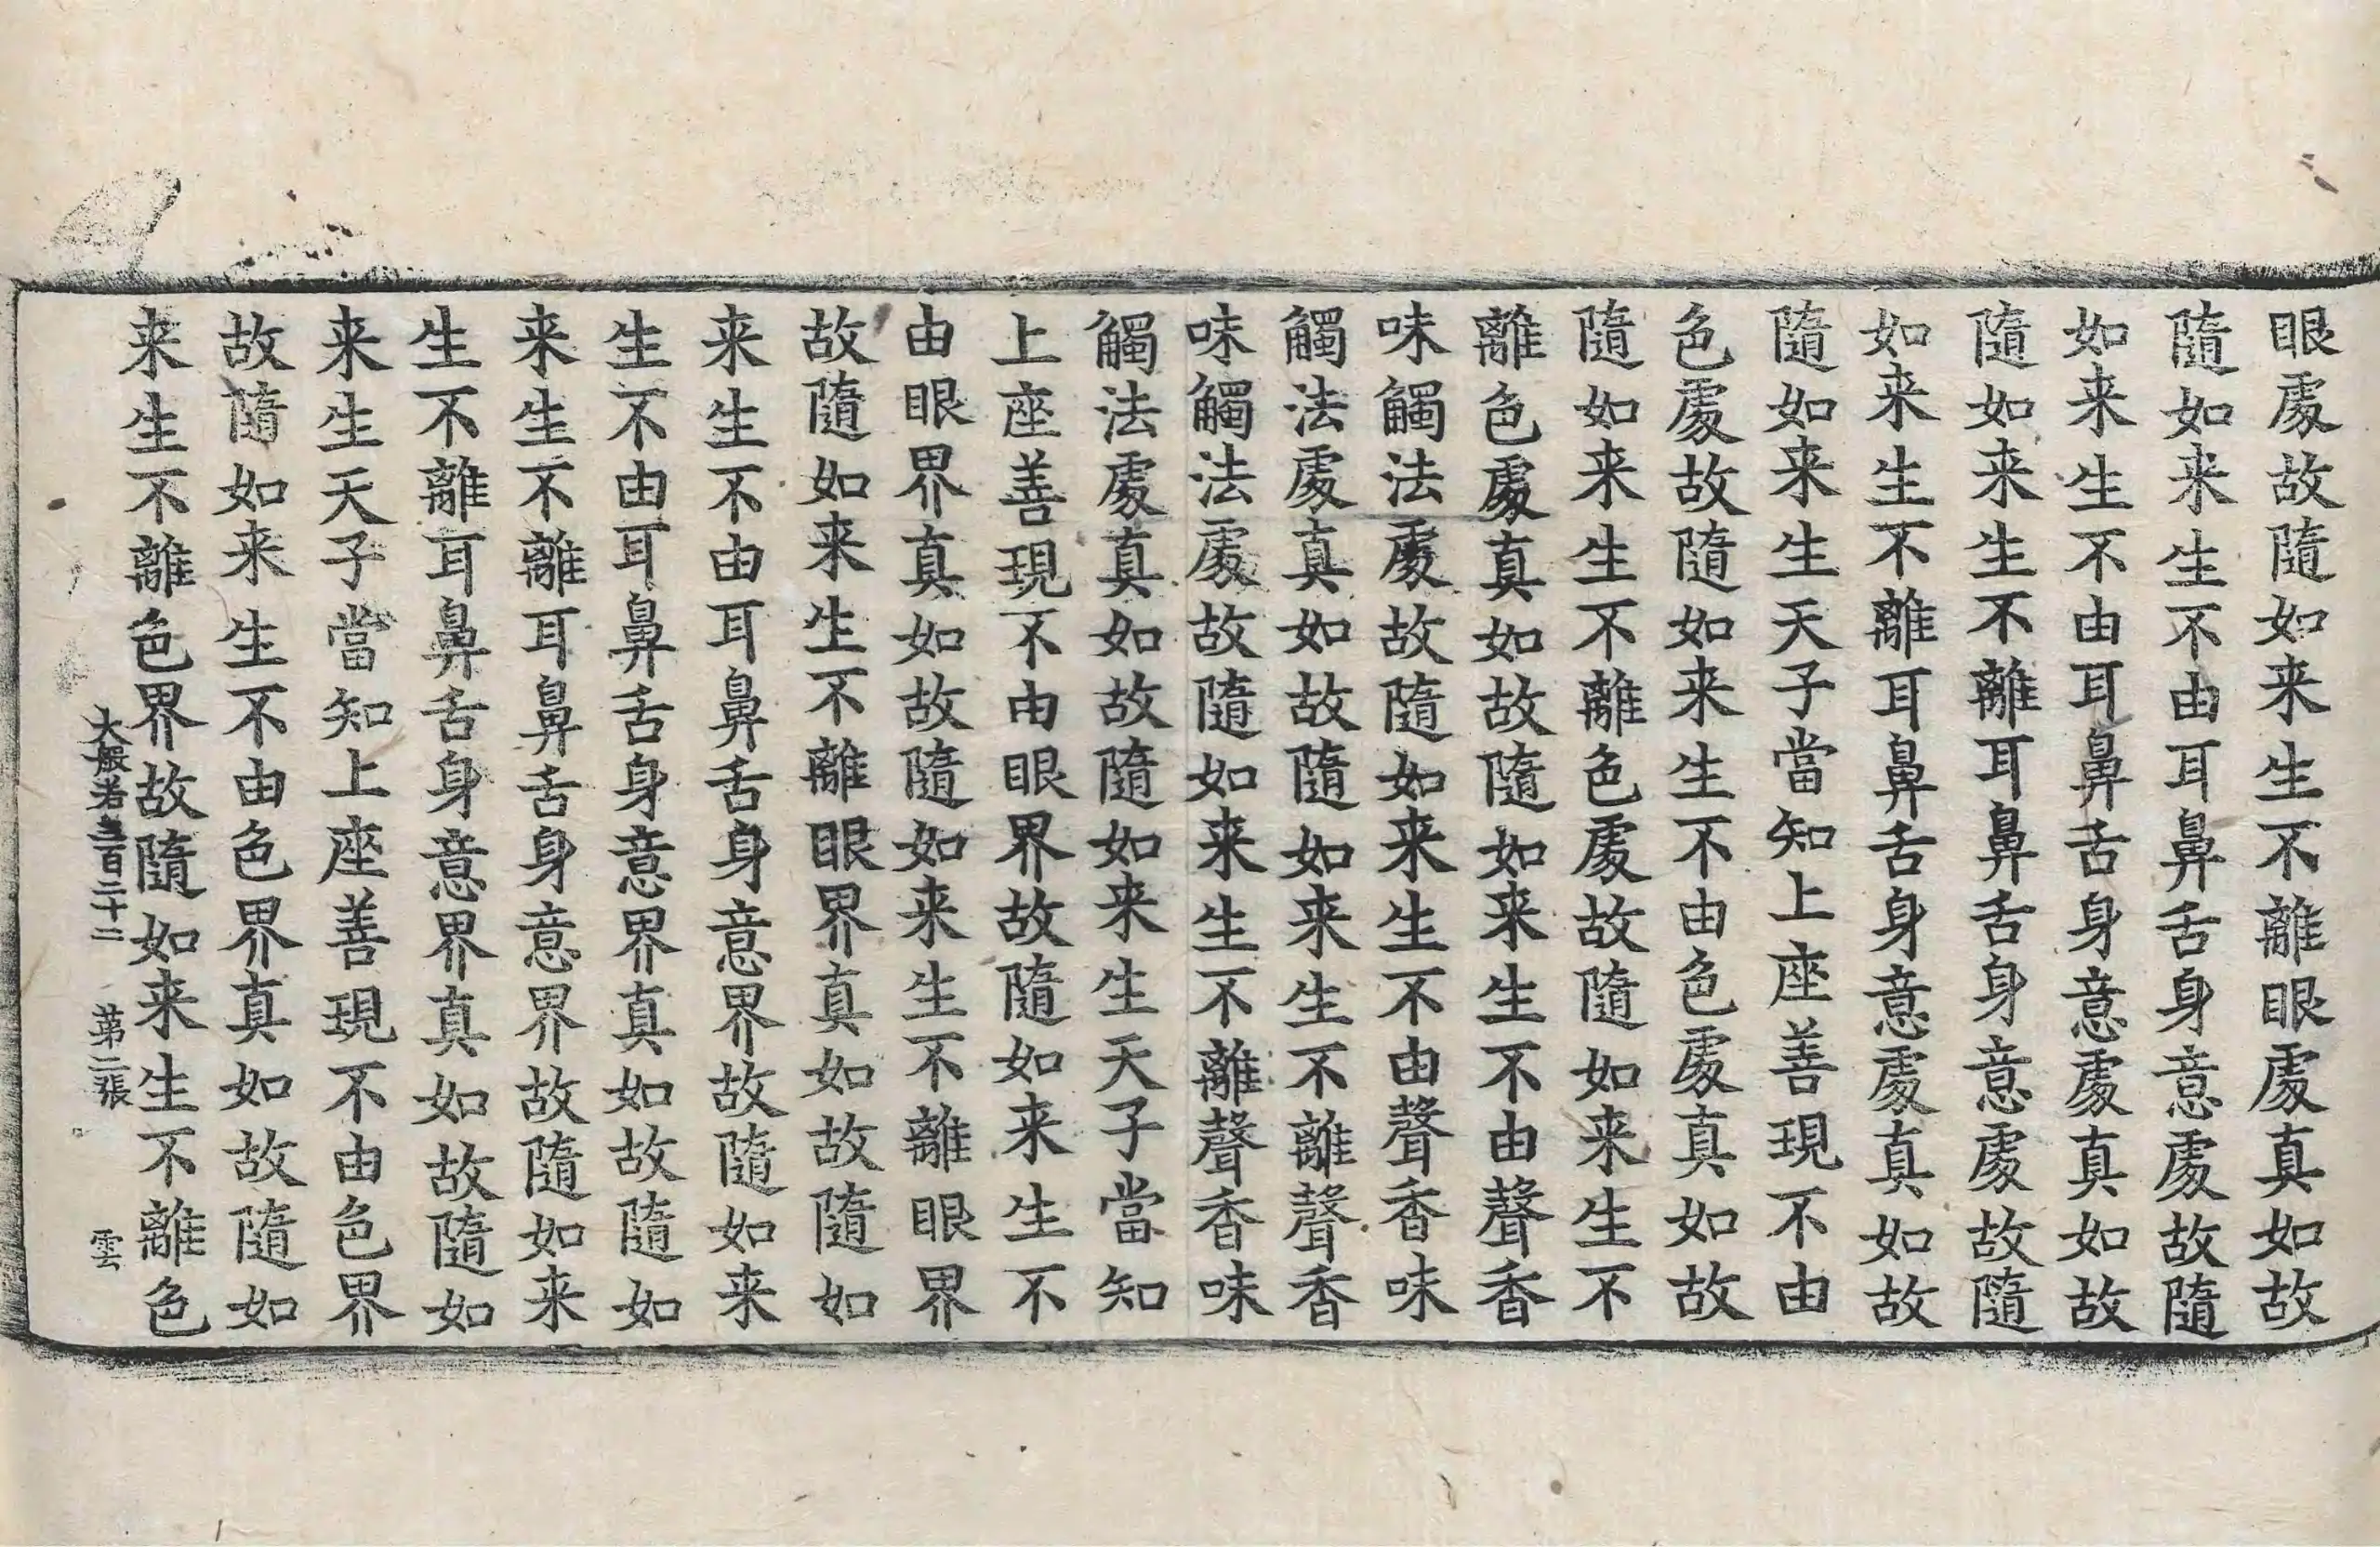 眼處故隨如来生不離眼處真如故
隨如来生不由耳鼻舌身意處故隨
如来生不由耳鼻舌身意處真如故
隨如来生不離耳鼻舌身意處故隨
如来生不離耳鼻舌身意處真如故
隨如来生天子當知上座善現不由
色處故隨如来生不由色處真如故
隨如来生不離色處故隨如来生不
離色處真如故隨如来生不由聲香
味觸法處故隨如来生不由聲香味
觸法處真如故隨如来生不離聲香
味觸法處故隨如来生不離聲香味
觸法處真如故隨如来生天子當知
上座善現不由眼界故隨如来生不
由眼界真如故隨如来生不離眼界
故隨如来生不離眼界真如故隨如
来生不由耳鼻舌身意界故隨如来
生不由耳鼻舌身意界真如故隨如
来生不離耳鼻舌身意界故隨如来
生不離耳鼻舌身意界真如故隨如
来生天子當知上座善現不由色界
故隨如来生不由色界真如故隨如
来生不離色界故隨如来生不離色
大般若三百二十二 第二張 雲